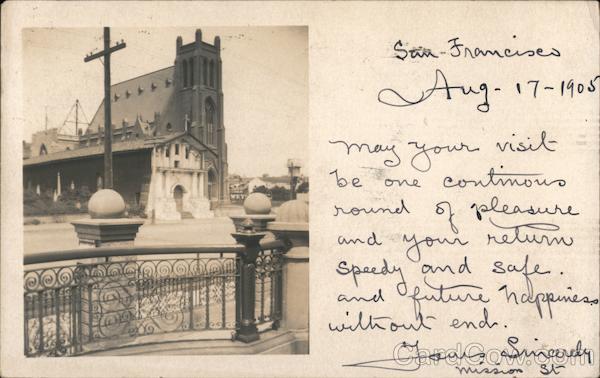 San Francisco
Aug - 17 - 1905
May your visit
be one continous
round of pleasure
and your return
speedy and safe.
and future happiness
without end.
Yours Sincerely
Mission St
CardCow.com